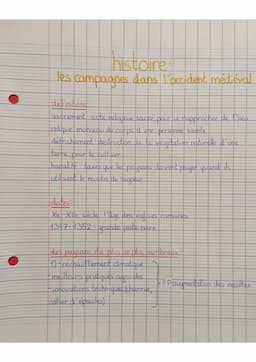 histoire
les campagnes dans l'occident médiéval
définitions
sacrement: acte religieux sacré, pour se rapprocher de Dieu
relique: morceau du corps d'une personne sainte
défrichement: destruction de la végétation naturelle d'une
terre, pour la cultiver
banalité: taxes que les paysans doivent payer quand ils
utilisent le moulin du seigneur
dates
Xe-XIIe siècle l'âge des églises romanes
1347-1352 grande peste noire
des paysans de plus en plus nombreux
1) - réchauffement climatique
- meilleurs pratiques agricoles
- innovations techniques (charrue,
collier d'épaules)
=> augmentation des récoltes